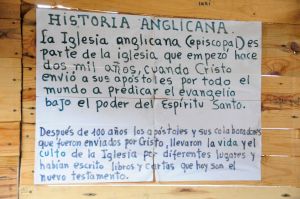 HISTORIA ANGLICANA.
la Iglesia anglicana (episcopal) es
parte de la iglesia que empezó hace
dos mil años, cuando Cristo
envió a sus apóstoles por todo el
mundo a predicar el evangelio
bajo el poder del Espíritu Santo.
Después de 100 años los apóstoles y sus colaboradores
que fueron enviados por Cristo, llevaron la vida y el
culto de la Iglesia por diferentes lugares y
habían escrito libros y cartas que hoy son el
nuevo testamento.